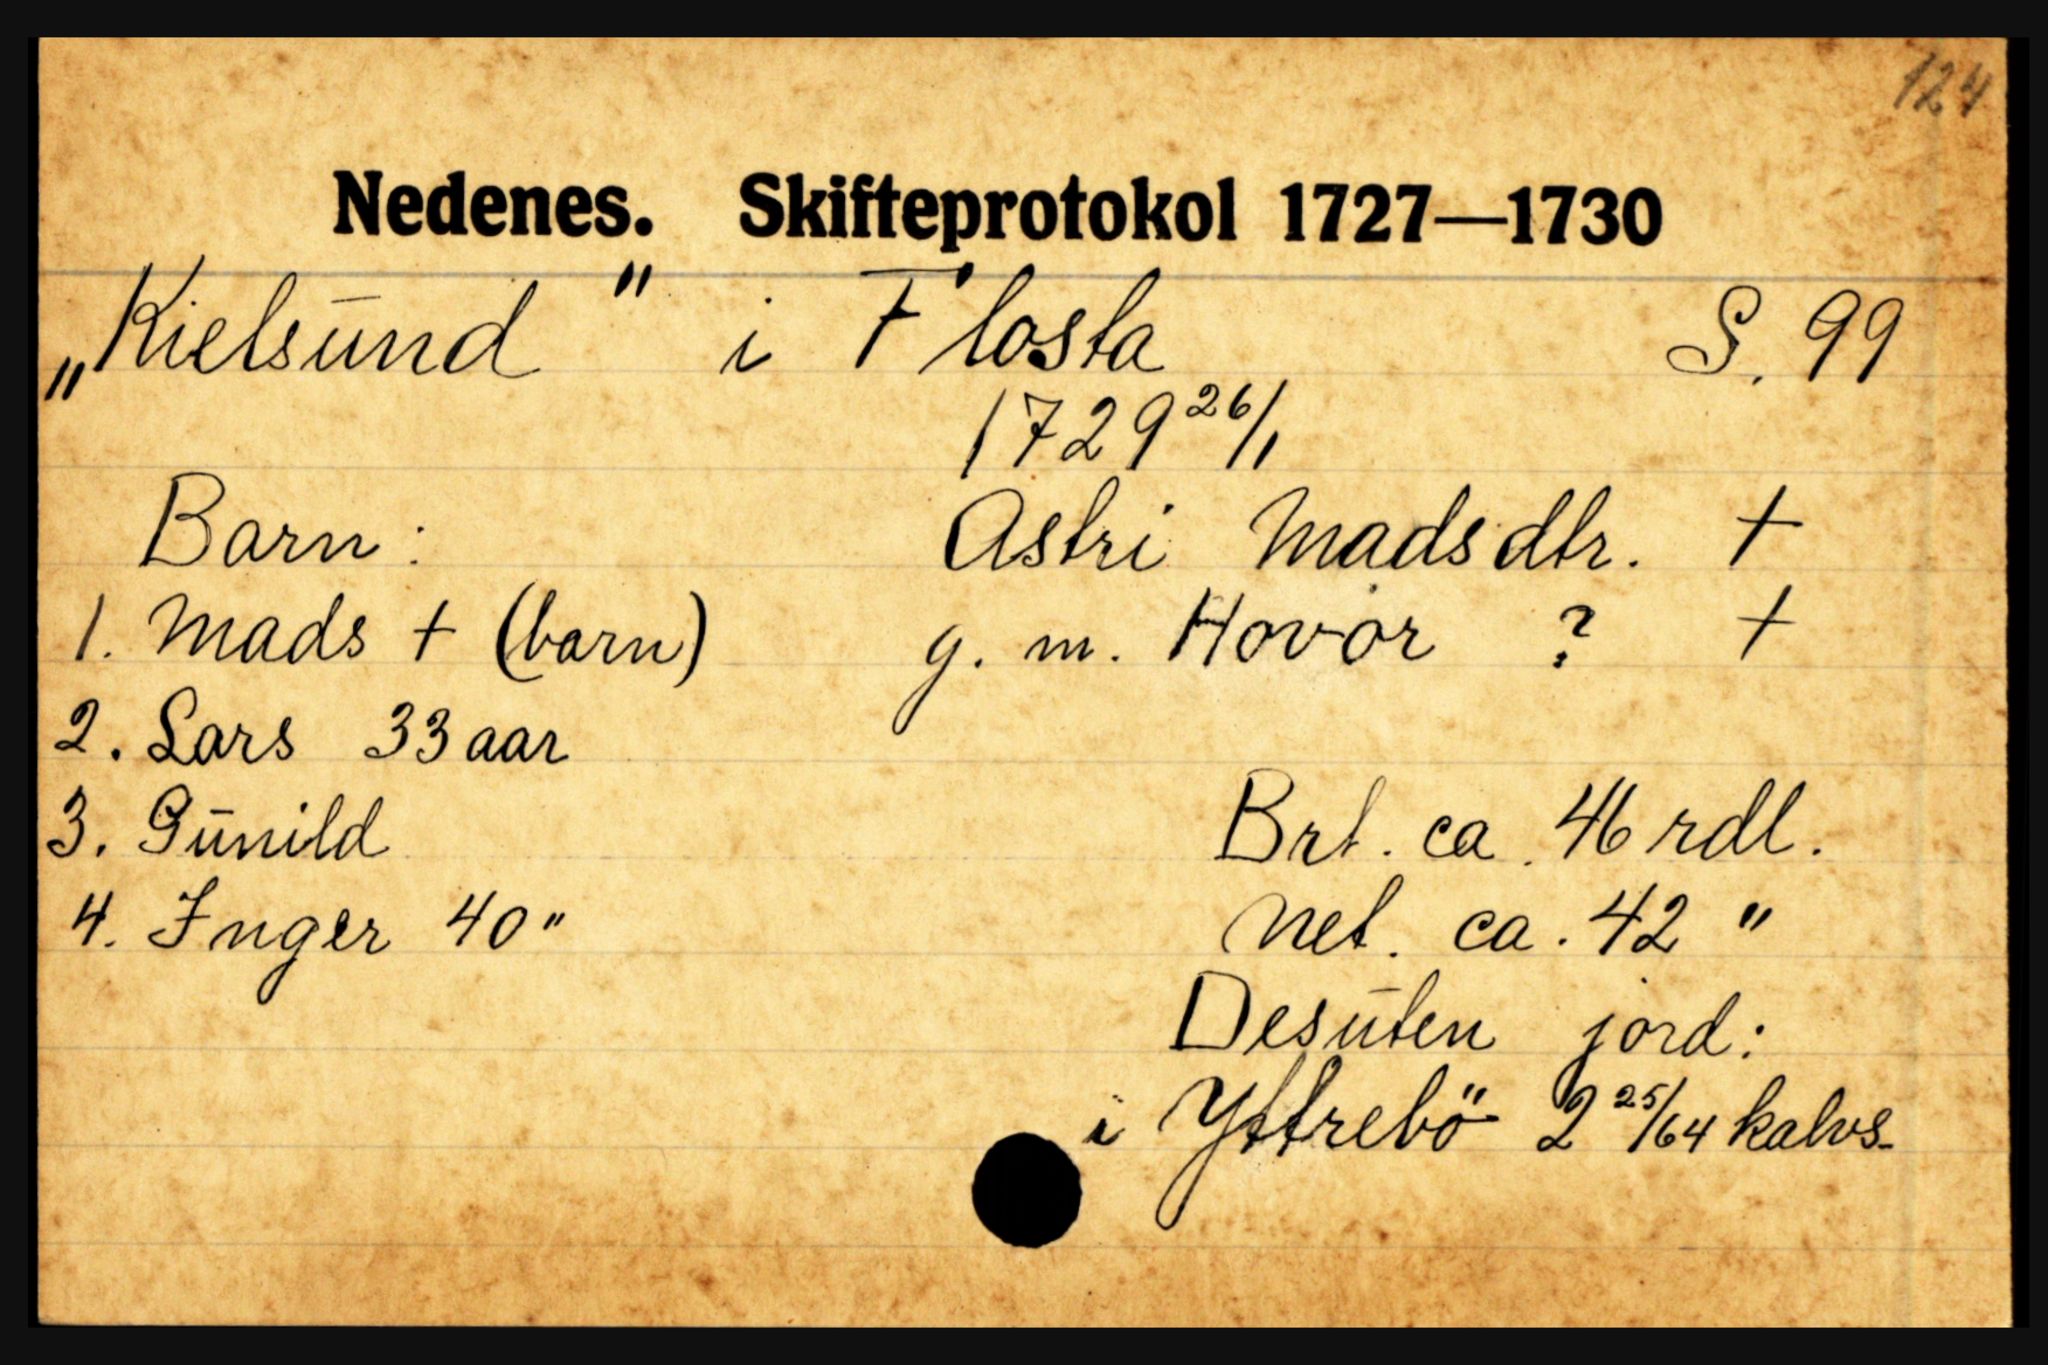 124
Nedenes. Skifteprotokol 1727—1730
„Kielsund" i Flosta S. 99
1729 26/1
Barn: Astri Madsdtr. +
1. Mads + (barn) g. m. Hovor ? +
2. Lars 33 aar
3. Gunild Brt. ca. 46 rdl.
4. Inger 40 " Net. ca. 42 "
Desuten jord:
i Yttrebö 2 25/64 kalvs-